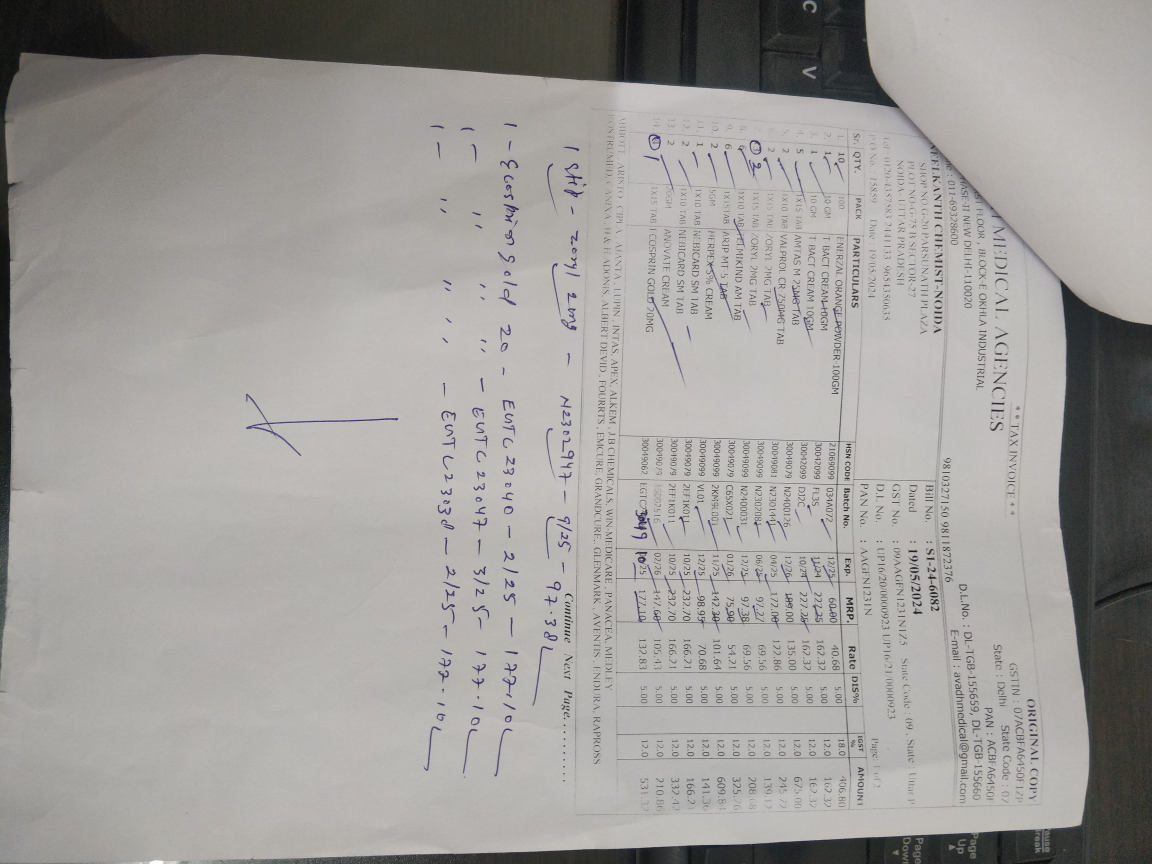 * * TAX INVOICE * *
ORIGINAL COPY
MEDICAL AGENCIES
GSTIN : 07ACBFA6450F1ZP
FLOOR , BLOCK-E OKHLA INDUSTRIAL
State : Delhi State Code : 07
PHASE-II NEW DELHI-110020
PAN : ACBFA6450F
: 011-69328600
9810327150 9811872376
D.L.No. : DL-TGB-155659, DL-TGB-155660
E-mail : avadhmedical@gmail.com
NEELKANTH CHEMIST-NOIDA
Bill No. : S1-24-6082
SHOP NO-G-20 PARSUNATH PLAZA
Dated : 19/05/2024
PLOT NO-G-75 B SECTOR-27
GST No. : 09AAGFN1231N1Z5 State Code : 09 , State : Uttar P
NOIDA-UTTAR PRADESH
D.L. No. : UP16/20/0000923 UP16/21/0000923
PAN No. : AAGFN1231N
P.O No. : 15859 Date : 19/05/2024
Sr. QTY. PACK PARTICULARS HSN CODE Batch No. Exp. MRP. Rate DIS% IGST % AMOUNT
1. 10 ENERZAL ORANGE POWDER-100GM 21069099 034A072 12/25 60.00 40.68 5.00 18.0 406.80
2. 1 10 GM T BACT CREAM 10GM 30042099 FL35 11/24 227.25 162.32 5.00 12.0 162.32
3. 1 10 GM T BACT CREAM 10GM 30042099 DJ2C 10/24 227.25 162.32 5.00 12.0 162.32
4. 5 1X15 TAB AMTAS M 25MG TAB 30049079 N2400126 12/26 189.00 135.00 5.00 12.0 675.00
5. 2 1X10 TAB VALPROL CR 750MG TAB 30049081 04/25 172.00 122.86 5.00 12.0
6. 2 1X15 TAB ZORYL 2MG TAB 30049099 06/25 69.56 5.00 12.0 139.12
2 1X15 TAB ZORYL 2MG TAB 30049099 N2400031 12/25 97.38 69.56 5.00 12.0
8. 6 1X10 TAB TELMIKIND AM TAB 30049079 C65X021 01/26 75.90 54.21 5.00 12.0
9. 6 1X15 TAB ARIP MT 5 TAB 30049099 11/25 142.30 101.64 5.00 12.0 609.84
10. 2 5GM HERPEX 5% CREAM 30049099 VL01 12/25 98.95 70.68 5.00 12.0 141.36
11. 1 1X10 TAB NEBICARD SM TAB 30049079 2EF1K011 10/25 232.70 166.21 5.00 12.0 166.2
12. 2 1X10 TAB NEBICARD SM TAB 30049079 2EF1K011 10/25 232.70 166.21 5.00 12.0 332.42
13. 2 ANOVATE CREAM 02/26 147.60 105.43 5.00 12.0 210.86
14. 1 1X15 TAB ECOSPRIN GOLD 20MG 30049062 10/25 177.10 132.83 5.00 12.0
ABBOTT , ARISTO , CIPLA , AJANTA , LUPIN , INTAS, APEX, ALKEM , J.B CHEMICALS, WIN-MEDICARE , PANACEA, MEDLEY
ALBERT DEVID , FOURRTS , EMCURE, GRANDCURE,, GLENMARK , AVENTIS , ENDURA, RAPROSS
Continue Next Page..........
1 Strip - Zoryl 2mg - N2302947 - 9/25 - 97.38
1 - Ecosprin gold 20 - EUTC23040 - 2/25 - 177.10
1 - " " " - EUTC23047 - 3/25 - 177.10
1 - " " " - EUTC23038 - 2/25 - 177.10